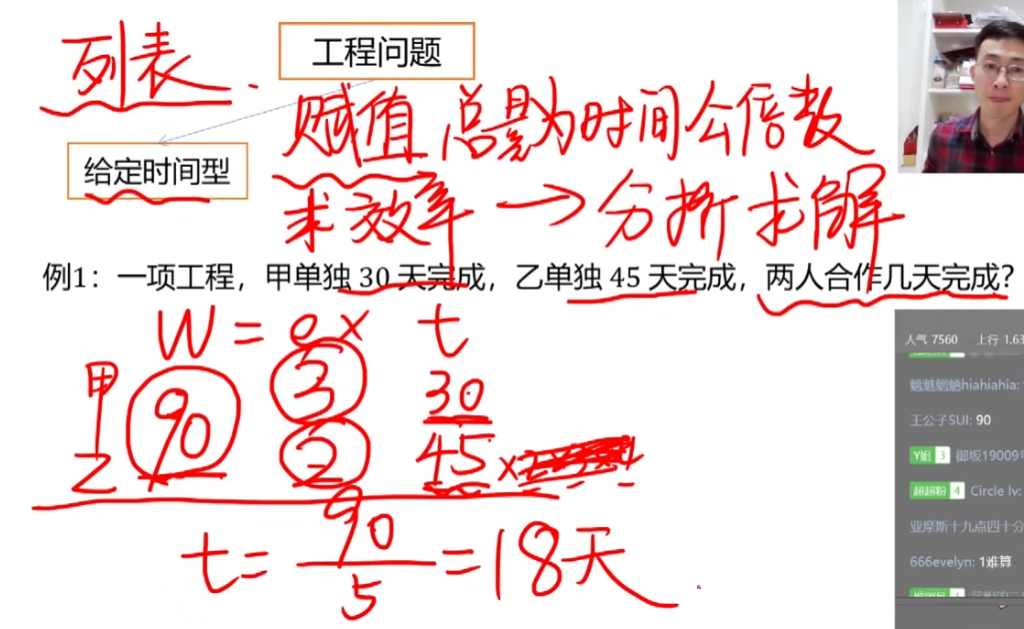 列表
工程问题
赋值 总量为时间公倍数
给定时间型
求效率 → 分析求解
例1：一项工程，甲单独 30 天完成，乙单独 45 天完成，两人合作几天完成？
W = e × t
甲 90 3 30
乙 2 45 ×
t = 90/5 = 18天
人气 7560 上行 1.63
魑魅魍魉hiahiahia:
王公子SUI: 90
Y姐 3 御坂19009
超超粉 4 Circle lv:
亚摩斯十九点四十分
666evelyn: 1难算